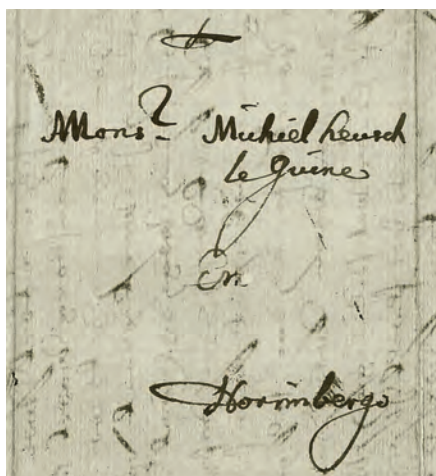 AMons.r Michiel heusch
le Juine
En
Norimbergo